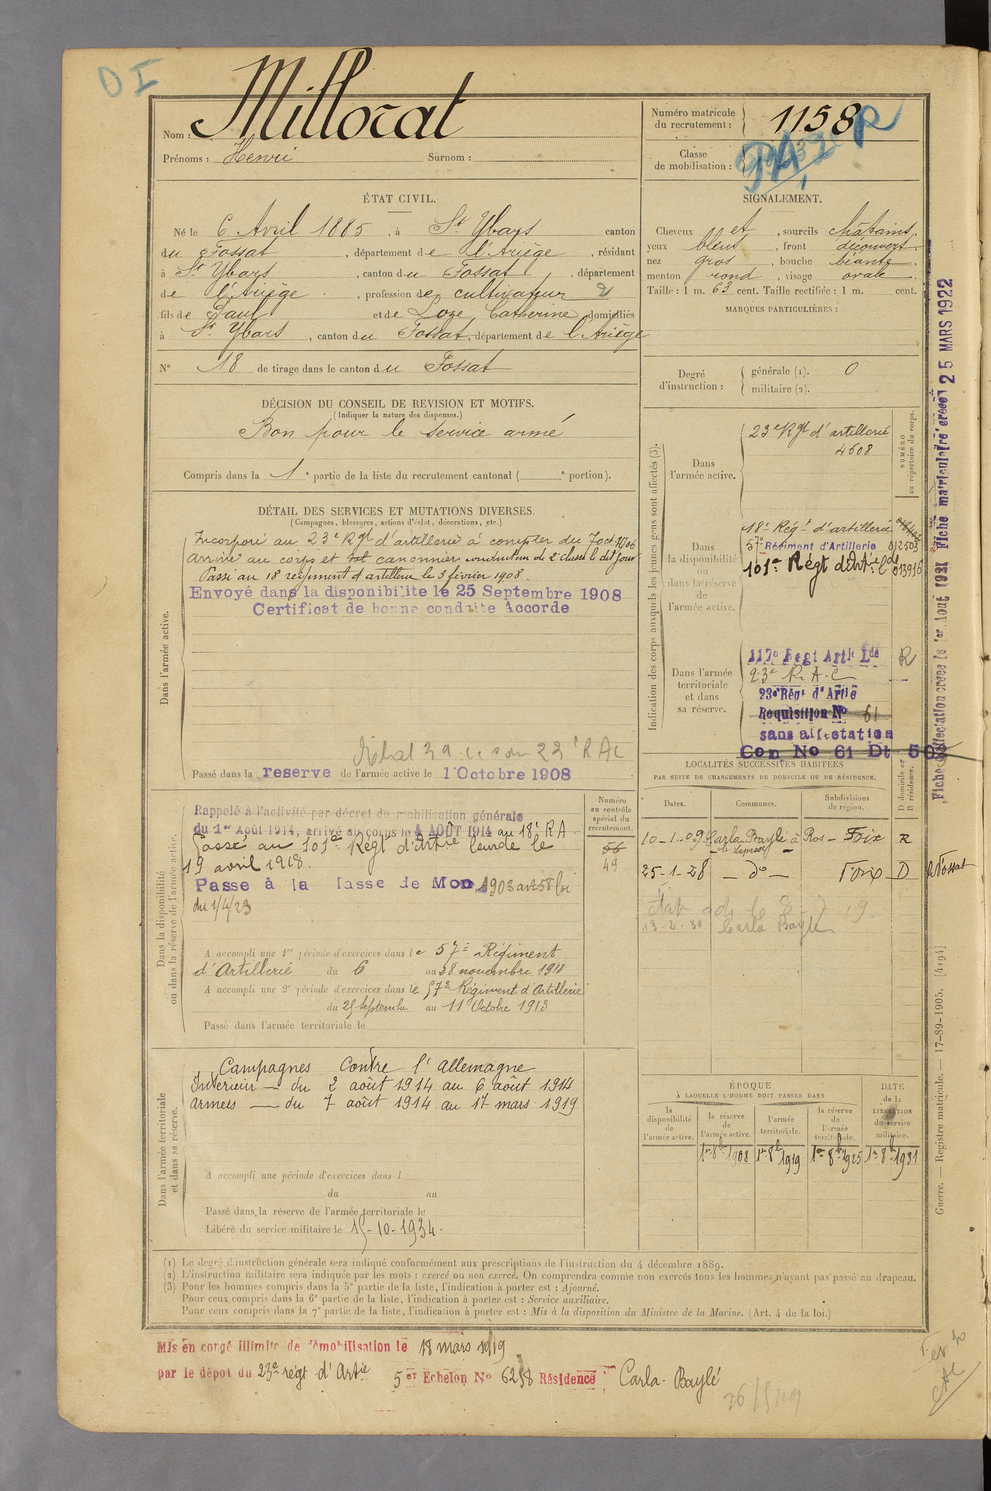 Nom : Millorat
Prénoms : Henri Surnom :
Numéro matricule du recrutement : 1158
Classe de mobilisation :
ÉTAT CIVIL.
Né le 6 Avril 1885, à St Ybars canton
du Fossat, département de l'Ariège, résidant
à St Ybars, canton du Fossat, département
de l'Ariège, profession de cultivateur 2
fils de Paul et de Loze Catherine, domiciliés
à St Ybars, canton du Fossat, département de l'Ariège
N° 18 de tirage dans le canton du Fossat
SIGNALEMENT.
Cheveux et, sourcils châtains,
yeux bleus, front découvert
nez gros, bouche béante,
menton rond, visage ovale
Taille : 1 m. 63 cent. Taille rectifiée : 1 m. cent.
MARQUES PARTICULIÈRES :
Degré d'instruction : générale (1). 0
militaire (2).
DÉCISION DU CONSEIL DE REVISION ET MOTIFS.
(Indiquer la nature des dispenses.)
Bon pour le service armé
Compris dans la 1e partie de la liste du recrutement cantonal ( e portion).
DÉTAIL DES SERVICES ET MUTATIONS DIVERSES.
(Campagnes, blessures, actions d'éclat, décorations, etc.)
Dans l'armée active.
Incorporé au 23e Rgt d'artillerie à compter du 7 oct 1906
arrivé au corps et canonnier conducteur de 2e classe le dit jour
Passé au 18 régiment d'artillerie le 3 février 1908.
Envoyé dans la disponibilité le 25 Septembre 1908
Certificat de bonne conduite Accordé
Passé dans la réserve de l'armée active le 1 Octobre 1908
Indication des corps auxquels les jeunes gens sont affectés (3).
NUMÉRO au répertoire du corps.
Dans l'armée active.
23e Rgt d'artillerie
4608
Dans la disponibilité ou dans la réserve de l'armée active.
18e Régt d'artillerie
57e Régiment d'Artillerie 012503
101e Régt d'Art. Ld 013916
Dans l'armée territoriale et dans sa réserve.
117e Régt Artie Lde R
23e R.A.C
23e Régt d'Artie
Requisition N° 61
sans affectation
Gen No 61 Dt 50
Dans la disponibilité ou dans la réserve de l'armée active.
Rappelé à l'activité par décret de mobilisation générale
du 1er Août 1914, arrivé au corps le 4 AOÛT 1914 au 18e RA
Passé au 101e Régt d'Artie lourde le
19 avril 1918.
Passé à la classe de Mon 1903 art 58 loi
du 1/4/23
A accompli une 1re période d'exercices dans le 57e Régiment
d'Artillerie du 6 au 28 novembre 1911
A accompli une 2e période d'exercices dans le 57e Régiment d'Artillerie
du 25 Septembre au 11 Octobre 1913
Passé dans l'armée territoriale le
Numéro au contrôle spécial du recrutement.
56
49
LOCALITÉS SUCCESSIVES HABITÉES
PAR SUITE DE CHANGEMENTS DE DOMICILE OU DE RÉSIDENCE.
Dates. Communes. Subdivisions de région. D domicile ou R résidence.
10-1-09 Carla Bayle à Ros - Foix R
25-1-28 - do - Foix D
13-2-30 Carla Bayle
Dans l'armée territoriale et dans sa réserve.
Campagnes Contre l'Allemagne
Intérieur - du 2 août 1914 au 6 août 1914
Armées - du 7 août 1914 au 17 mars 1919
A accompli une période d'exercices dans l
du au
Passé dans la réserve de l'armée territoriale le
Libéré du service militaire le 15-10-1934.
ÉPOQUE
À LAQUELLE L'HOMME DOIT PASSER DANS
la disponibilité de l'armée active.
la réserve de l'armée active. 1er 8b 1908
l'armée territoriale. 1er 8b 1919
la réserve de l'armée territoriale. 1er 8b 1925
DATE de la LIBÉRATION du service militaire. 1er 8b 1931
(1) Le degré d'instruction générale sera indiqué conformément aux prescriptions de l'instruction du 4 décembre 1889.
(2) L'instruction militaire sera indiquée par les mots : exercé ou non exercé. On comprendra comme non exercés tous les hommes n'ayant pas passé au drapeau.
(3) Pour les hommes compris dans la 5e partie de la liste, l'indication à porter est : Ajourné.
Pour ceux compris dans la 6e partie de la liste, l'indication à porter est : Service auxiliaire.
Pour ceux compris dans la 7e partie de la liste, l'indication à porter est : Mis à la disposition du Ministre de la Marine. (Art. 4 de la loi.)
Mis en congé illimité de démobilisation le 18 mars 1919
par le dépôt du 23e régt d'Artie 5er Echelon No 6298 Résidence : Carla-Baylé
Guerre. — Registre matricule. — 17-89-1905. [4194]
Fiche matriculaire créée 25 MARS 1922